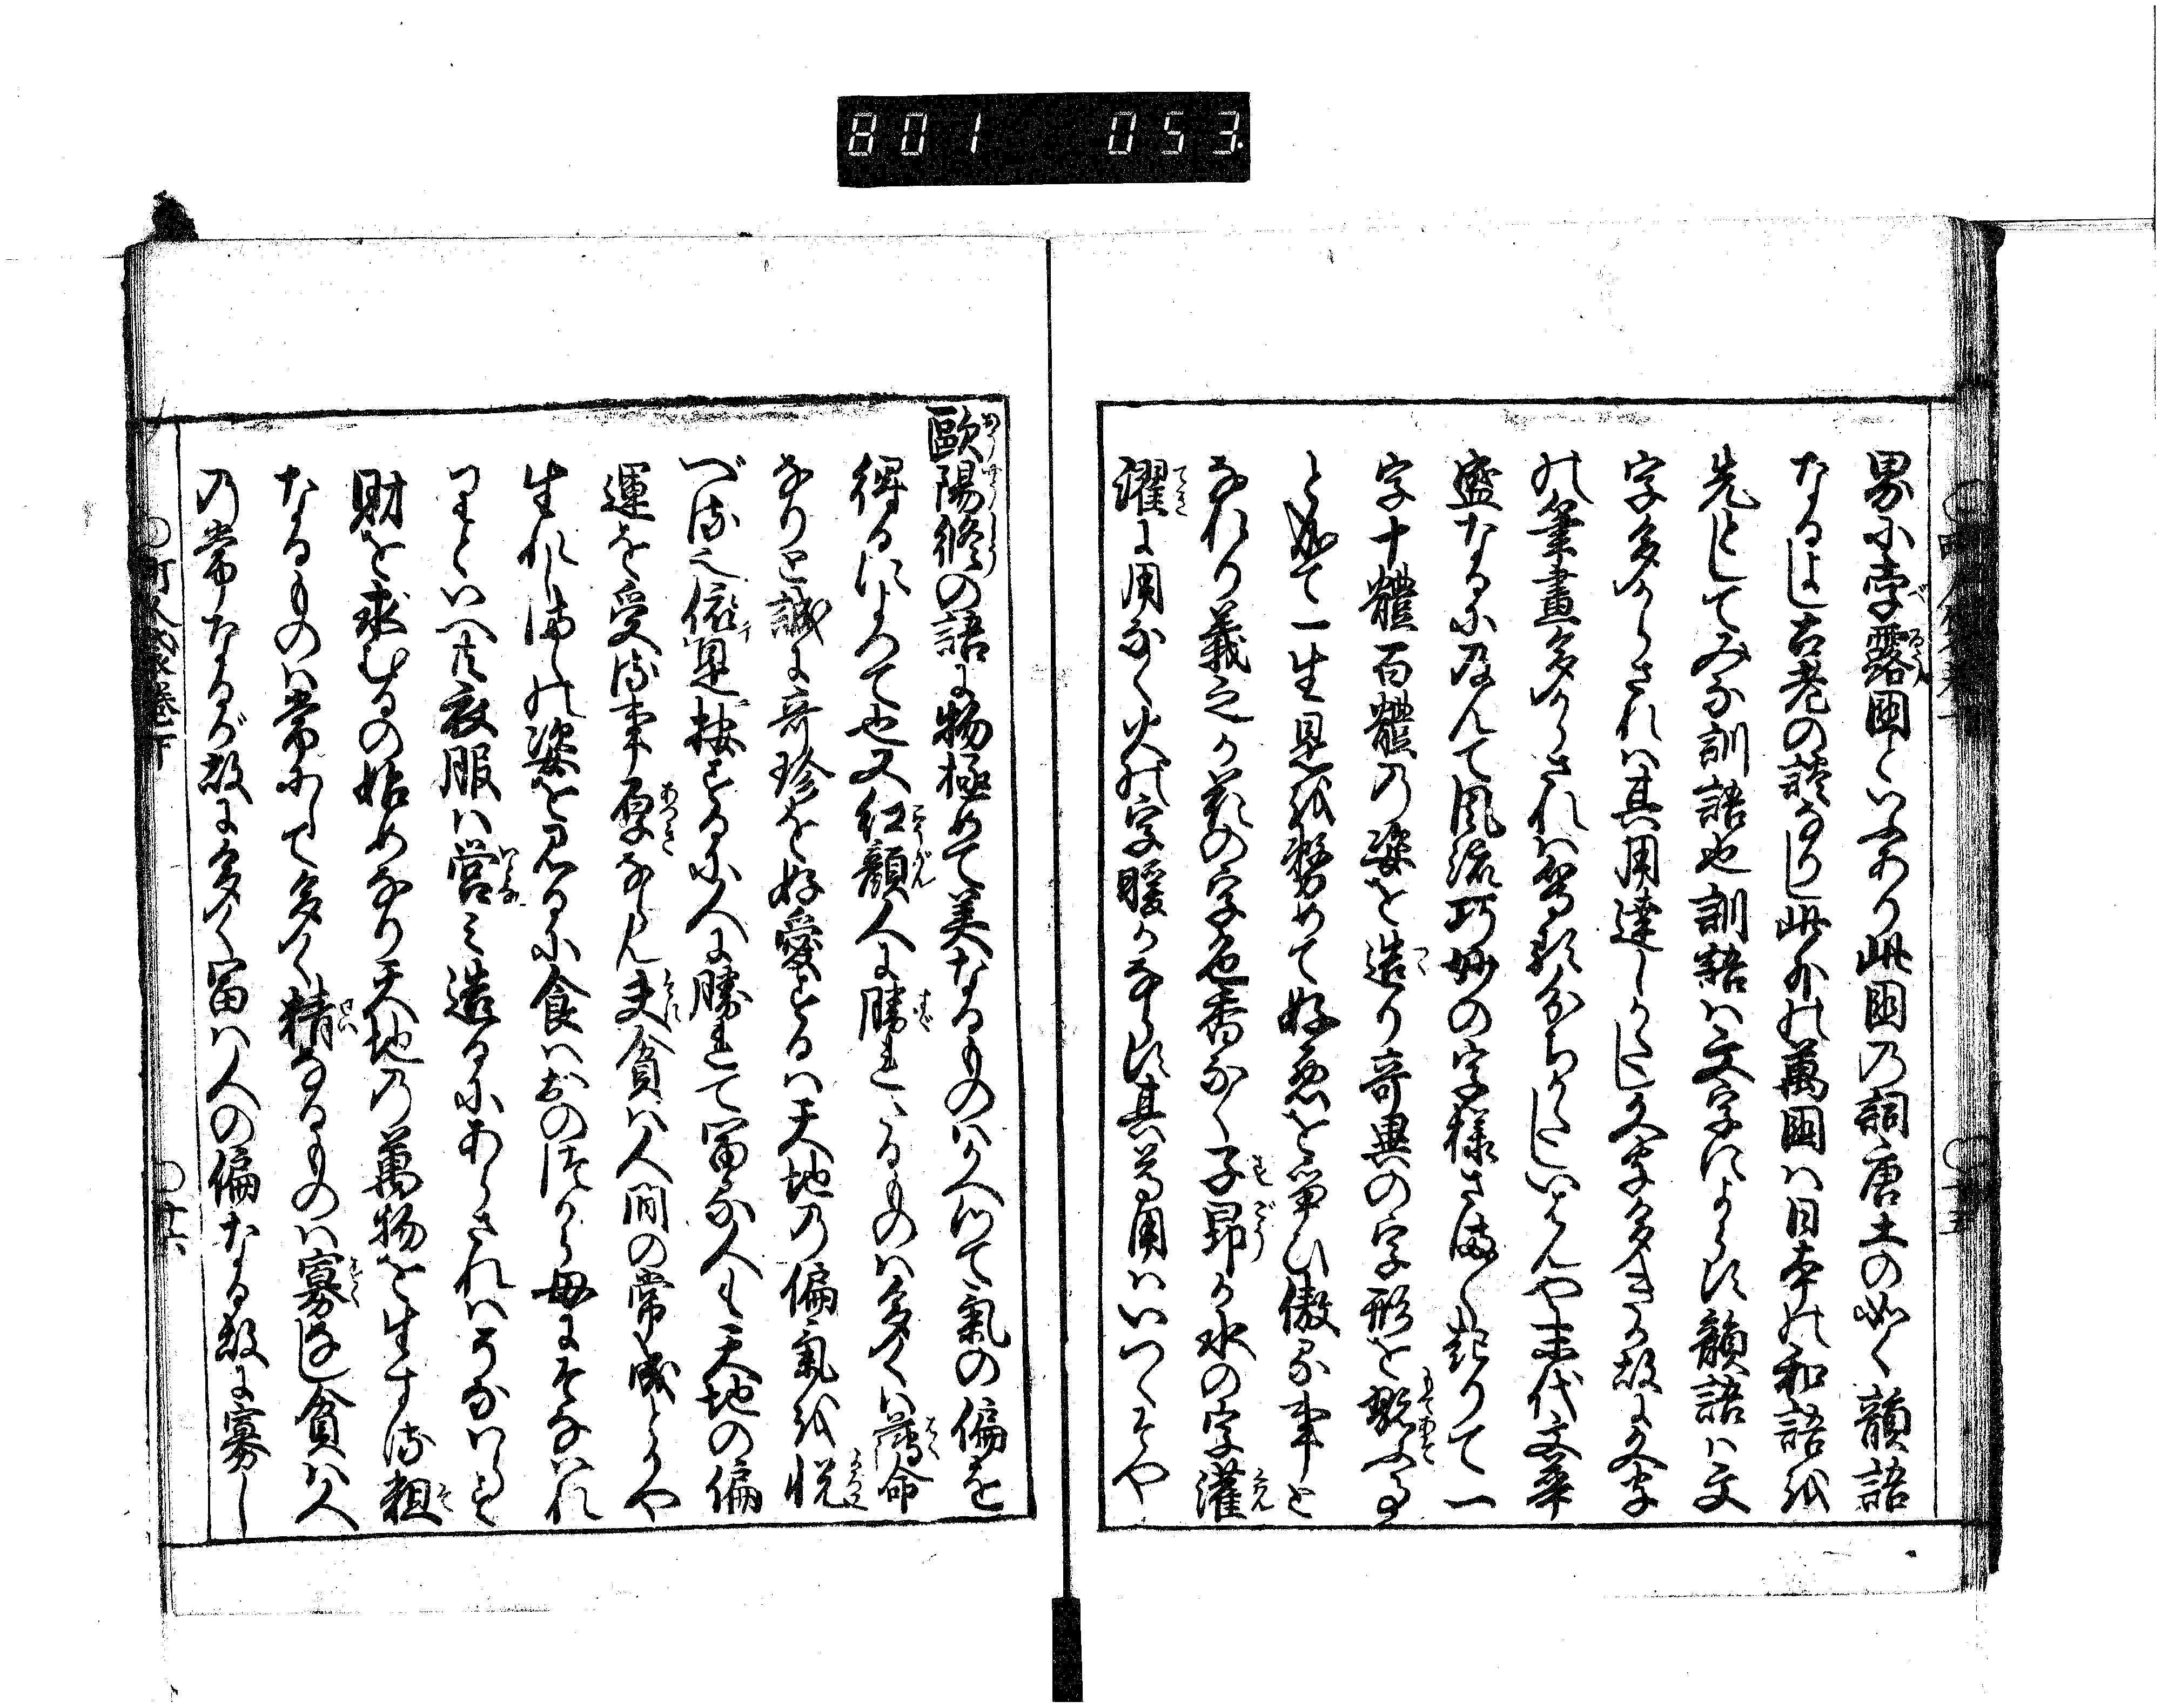 801 053
界に孛露国といふあり此国乃詞唐土の如く韻語
なるよし古老の諺なりし此外の萬国ハ日本の和語を
先としてみな訓語也訓語ハ文字によらす韻語ハ文
字多からされハ其用達しかたし文字多きか故に文字
の筆畫多からされハ形分ちかたしいはんや末代文華
盛なるに及んて風流巧妙の字様さま〳〵起りて一
字十體百體乃姿を造り奇異の字形を翫ふ事
と成て一生見を勞めて好悪を争ひ傲る事と
なれり義之か花の字色香なく子昻か水の字灌
濯に用なく火の字暖かならす其益用ハいつくそや
歐陽脩の語に物極めて美なるものハ必て氣の偏を
得るによつて也又紅顔人に勝れたるものハ多くハ薄命
なりと誠に奇珍を好愛するハ天地乃偏氣を悦
べる之依是按するに人に勝れて富る人も天地の偏
運を受る事厚ならん夫貧ハ人間の常成とかや
生れしまゝの姿を見るに食ハおのつから母にそなハれ
りといへ共衣服ハ営ミ造るにあらされハそなハらす
財を求むるの始めなり天地乃萬物を生する粗
なるものハ常にして多く精なるものハ寡し貧ハ人
乃常なるが故に多く富ハ人の偏なる故に寡し
町人嚢巻下
十六